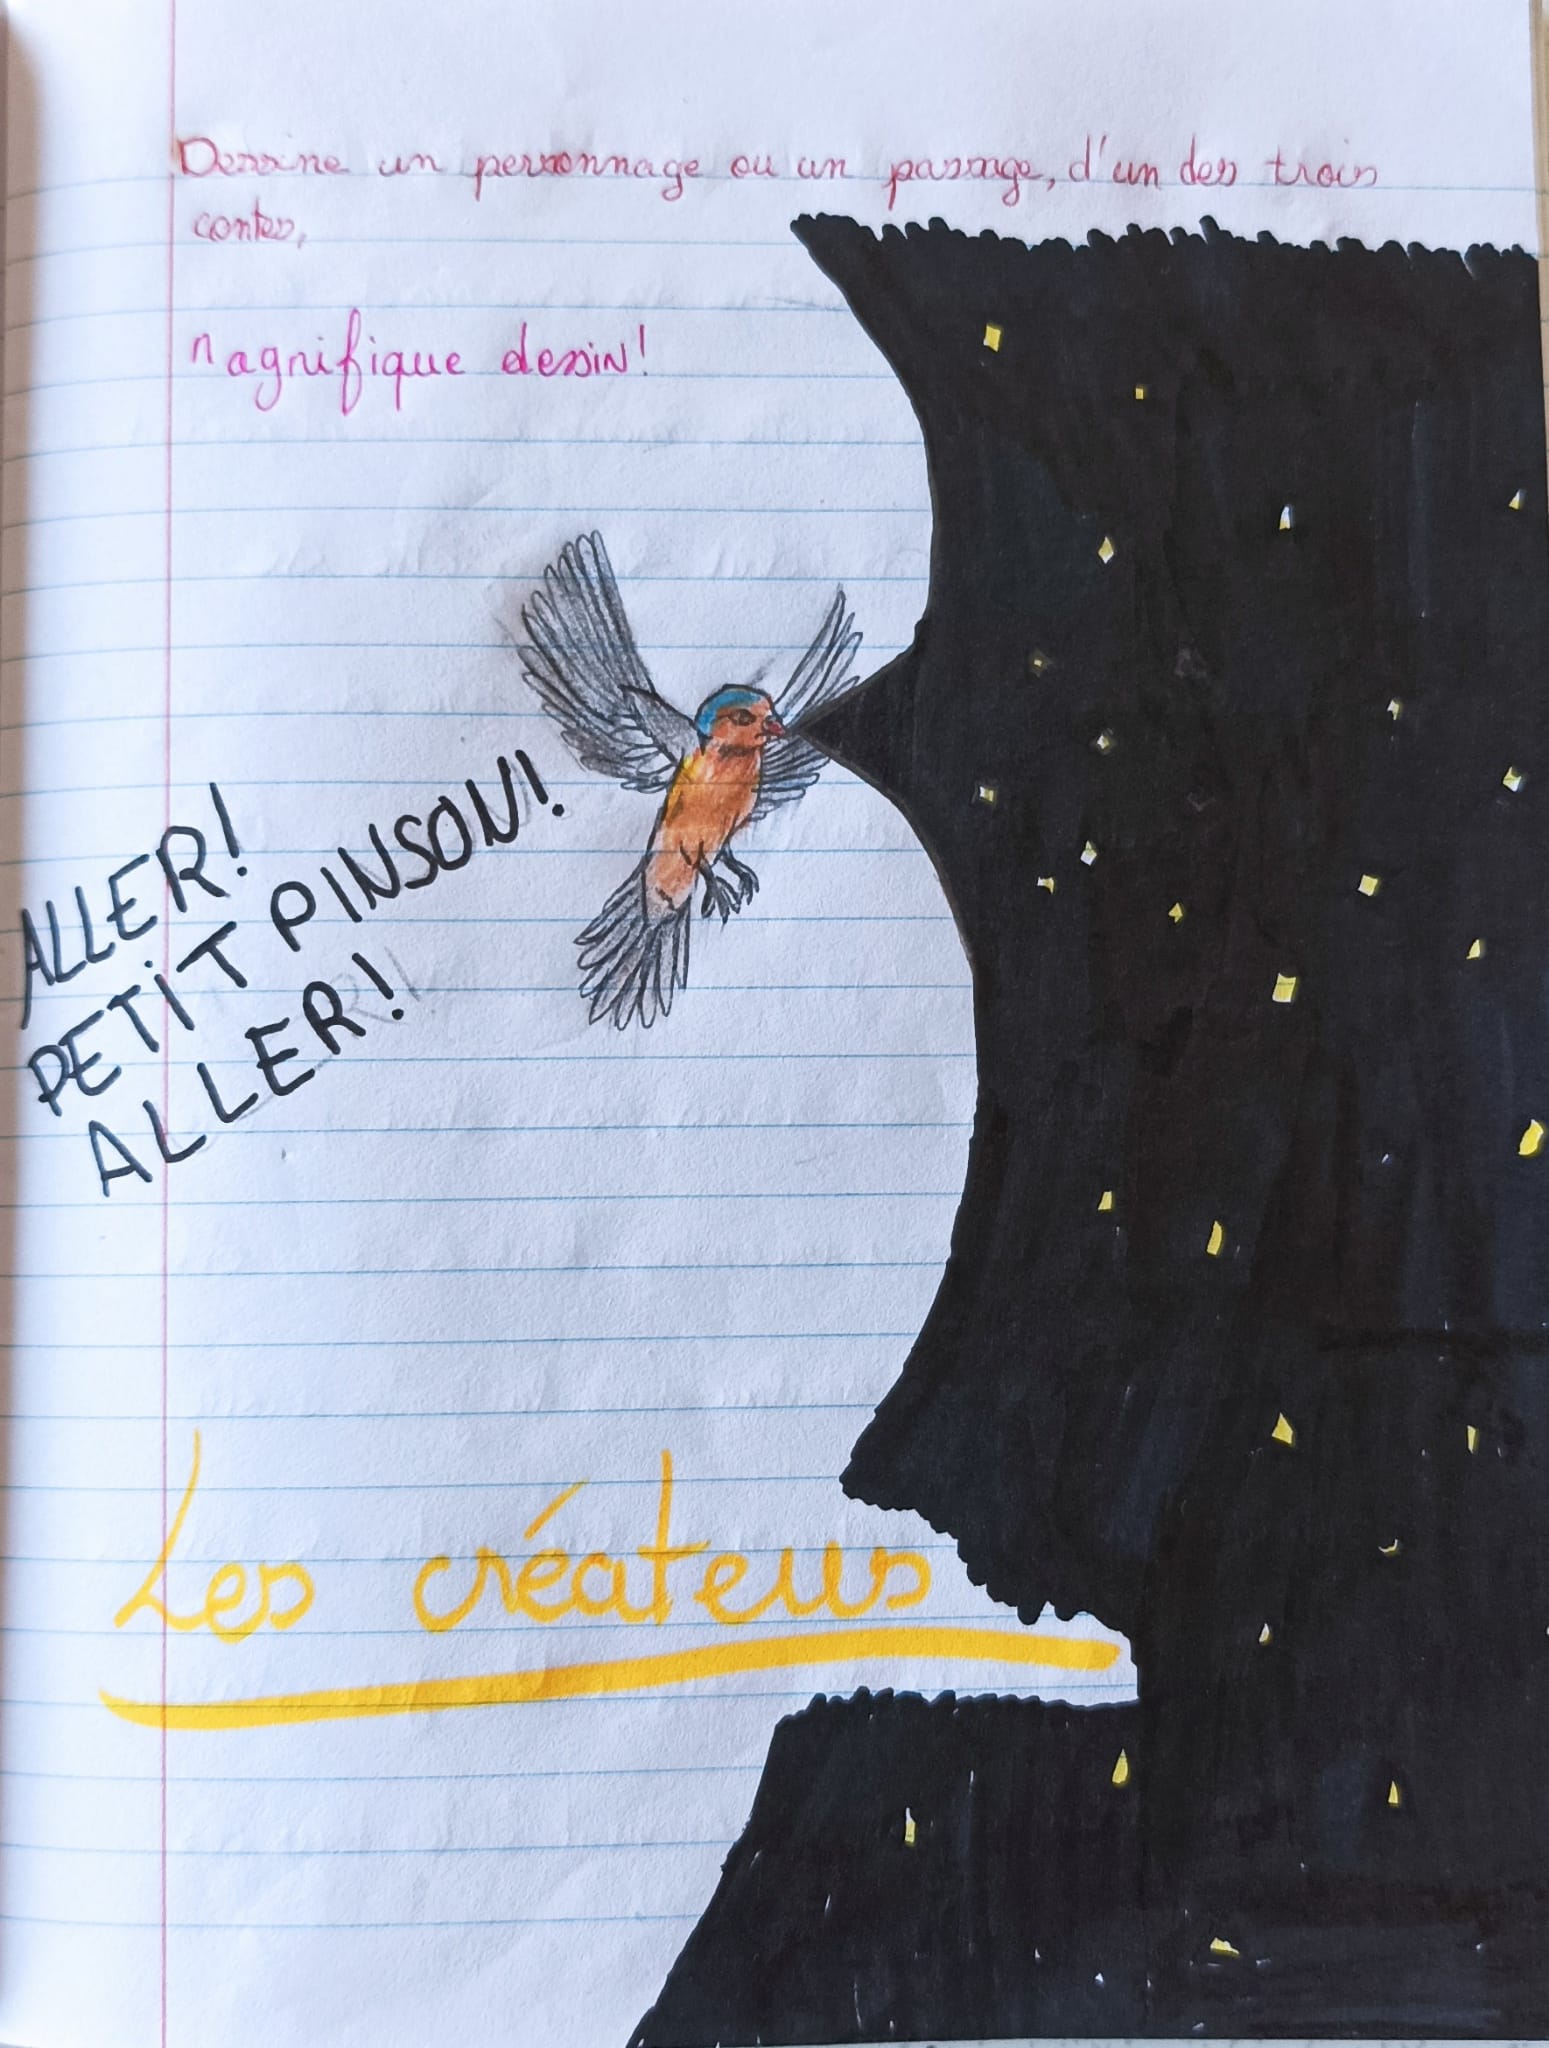 Dessine un personnage ou un passage, d'un des trois
contes,
Magnifique dessin!
ALLER!
PETIT PINSON!
ALLER!
Les créateurs